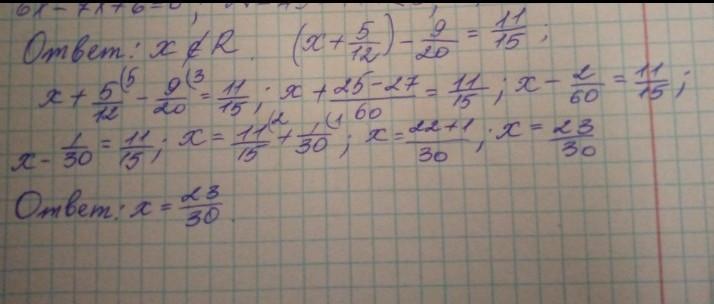 Ответ: x ∉ R. (x + 5/12) - 9/20 = 11/15;
x + 5/12 (5 - 9/20 (3 = 11/15; x + 25-27/60 = 11/15; x - 2/60 = 11/15;
x - 1/30 = 11/15; x = 11/15 (2 + 1/30 (1; x = 22+1/30; x = 23/30
Ответ: x = 23/30.